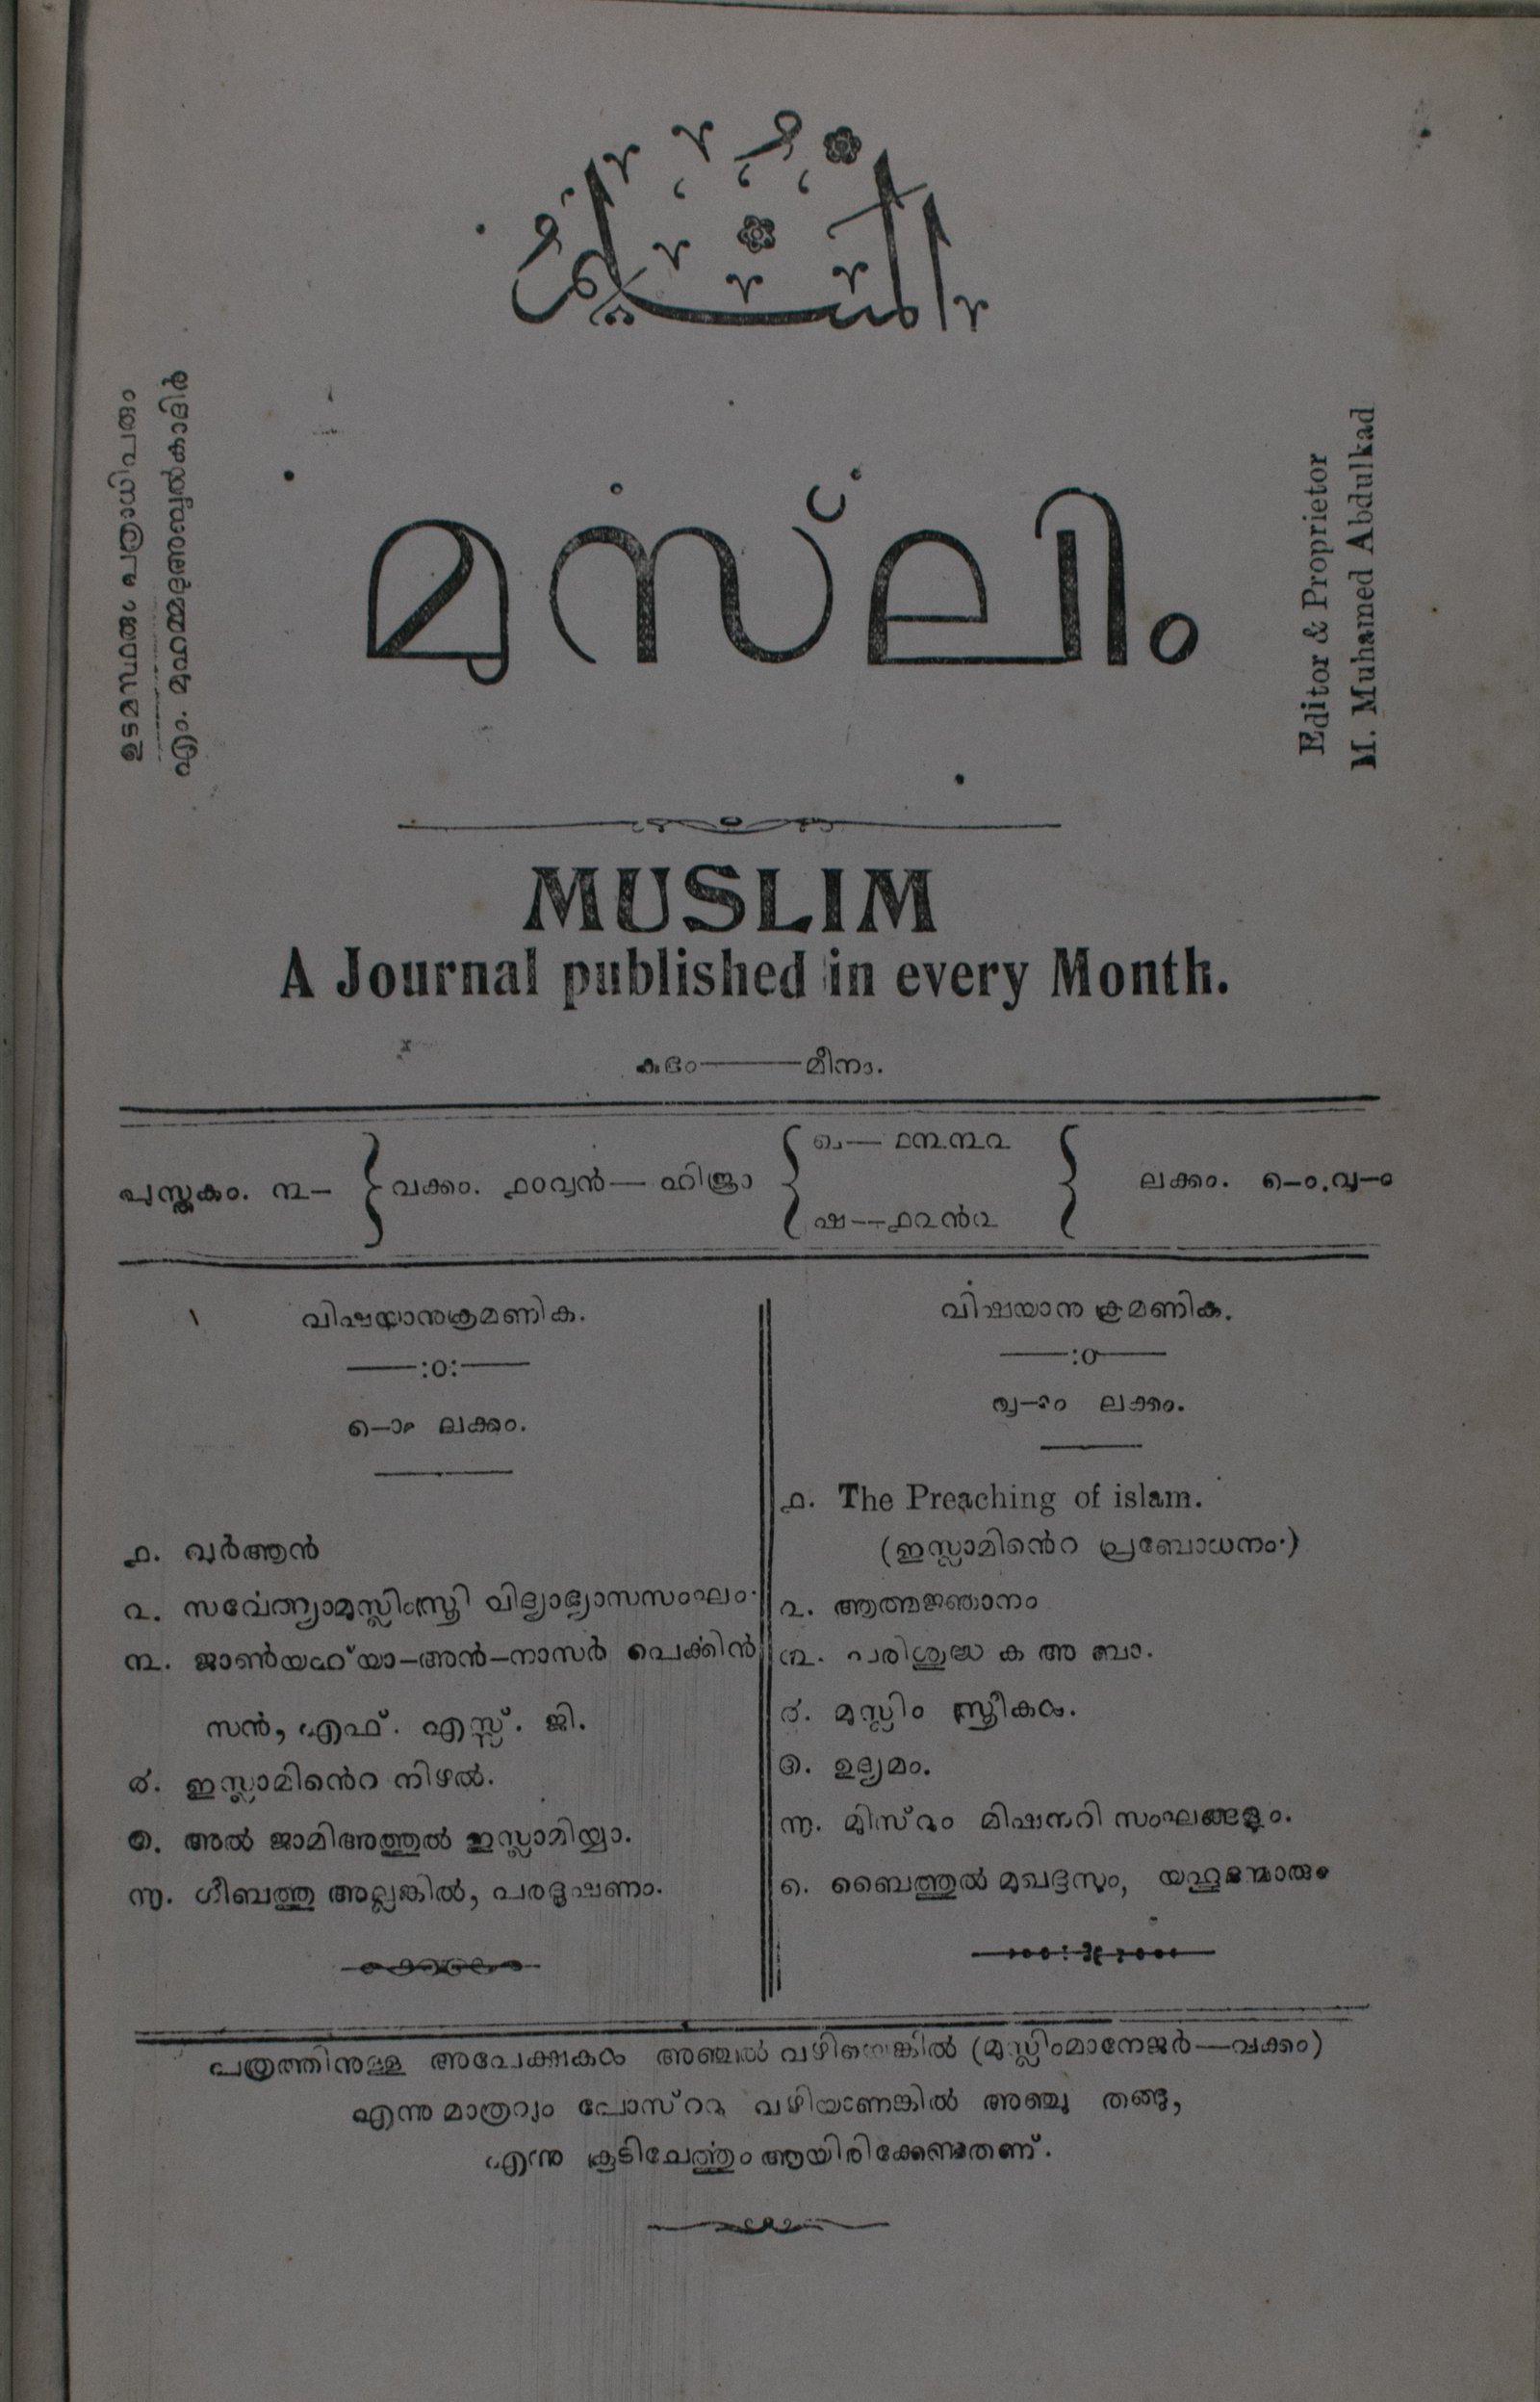 المسلم
ഉടമസ്ഥരും പത്രാധിപരും
എം. മുഹമ്മദുഅബ്ദുൽകാദിർ
മുസ്ലിം
Editor & Proprietor
M. Muhamed Abdulkad
MUSLIM
A Journal published in every Month.
കുഭം———മീനം.
പുസ്തകം. ൩—
വക്കം. ൧൦൮ൻ— ഹിജ്റാ
ഖ— ൧൩൩൨
ഷ——൧൨ൻ൨
ലക്കം. ൭—ം.൮—ം
വിഷയാനുക്രമണിക.
——:o:——
൭—ാം ലക്കം.
൧. ഖുർആൻ
൨. സർവേന്ത്യാമുസ്ലിംസ്ത്രീ വിദ്യാഭ്യാസസംഘം.
൩. ജാൺയഹ്‌യാ—അൻ—നാസർ പെക്കിൻ
സൻ, എഫ്. എസ്സ്. ജി.
൪. ഇസ്ലാമിൻെറ നിഴൽ.
൫. അൽ ജാമിഅത്തുൽ ഇസ്ലാമിയ്യാ.
൬. ഗീബത്തു അല്ലെങ്കിൽ, പരദൂഷണം.
വിഷയാനു ക്രമണിക.
——:o——
൮—ാം ലക്കം.
൧. The Preaching of islam.
(ഇസ്ലാമിൻെറ പ്രബോധനം.)
൨. ആത്മജ്ഞാനം
൩. പരിശുദ്ധ ക അ ബാ.
൪. മുസ്ലിം സ്ത്രീകൾ.
൫. ഉദ്യമം.
൬. മിസ്റും മിഷനറി സംഘങ്ങളും.
൭. ബൈത്തുൽ മുഖദ്ദസും, യഹൂദന്മാരും
പത്രത്തിനുള്ള അപേക്ഷകൾ അഞ്ചൽ വഴിയെങ്കിൽ (മുസ്ലിംമാനേജർ—വക്കം)
എന്നു മാത്രവും പോസ്ററു വഴിയാണെങ്കിൽ അഞ്ചു തെങ്ങു,
എന്നു കൂടിചേർത്തും ആയിരിക്കേണ്ടതണ്.